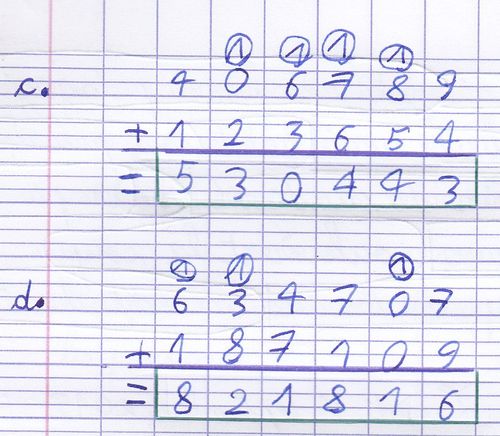 1 1 1 1
c. 4 0 6 7 8 9
+ 1 2 3 6 5 4
= 5 3 0 4 4 3
1 1 1
d. 6 3 4 7 0 7
+ 1 8 7 1 0 9
= 8 2 1 8 1 6